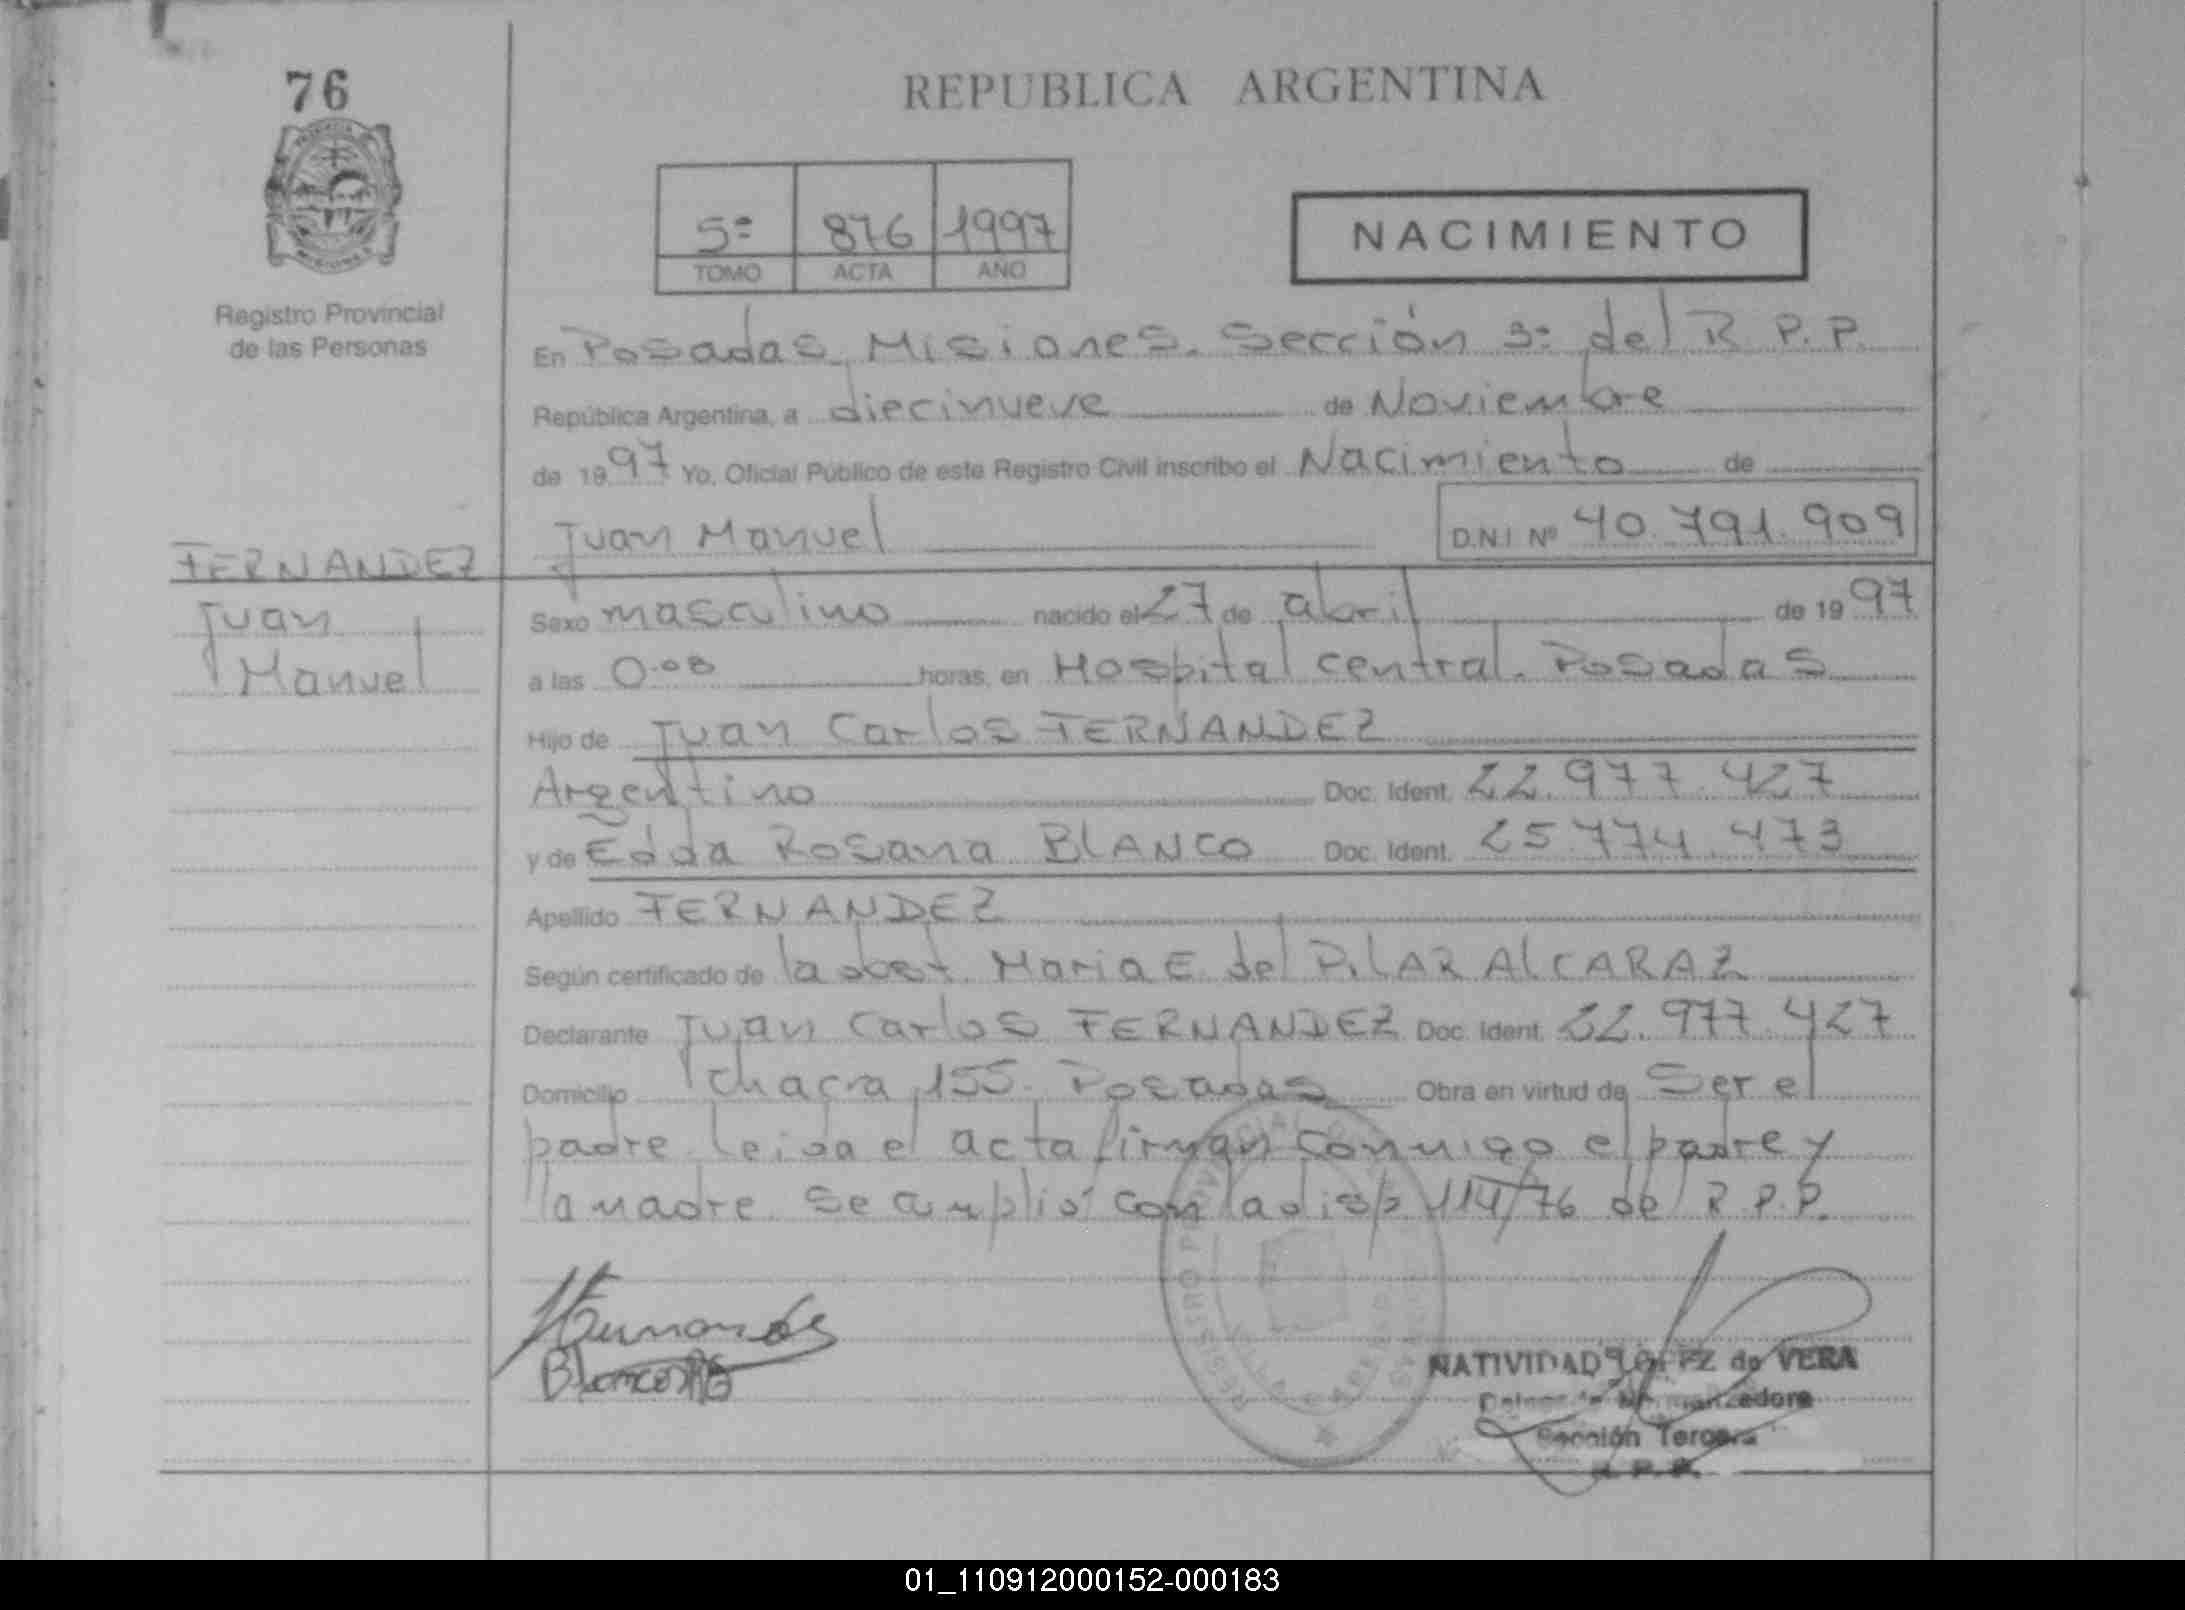 76
REPUBLICA ARGENTINA
5º 876 1997
TOMO ACTA AÑO
NACIMIENTO
Registro Provincial
de las Personas
En Posadas, Misiones. Sección 3º del R P.P.
República Argentina, a diecinueve de Noviembre
de 1997 Yo, Oficial Público de este Registro Civil inscribo el Nacimiento de
Juan Manuel D.N.I Nº 40.791.909
FERNANDEZ
Juan
Manuel
Sexo masculino nacido el 27 de abril de 1997
a las 0.08 horas, en Hospital central. Posadas
Hijo de Juan Carlos FERNANDEZ
Argentino Doc. Ident. 22.977.427
y de Edda Rosana BLANCO Doc. Ident. 25.774.473
Apellido FERNANDEZ
Según certificado de la obst. Maria E. del PILAR ALCARAZ
Declarante Juan Carlos FERNANDEZ Doc. Ident. 22.977.427
Domicilio Chacra 155. Posadas Obra en virtud de Ser el
padre. Leida el acta firman conmigo el padre y
la madre. Se cumplió con la disp 114/76 del R P.P.
REGISTRO PROVINCIAL
NATIVIDAD de VERA
Sección Tercera
R. P. P.
01_110912000152-000183